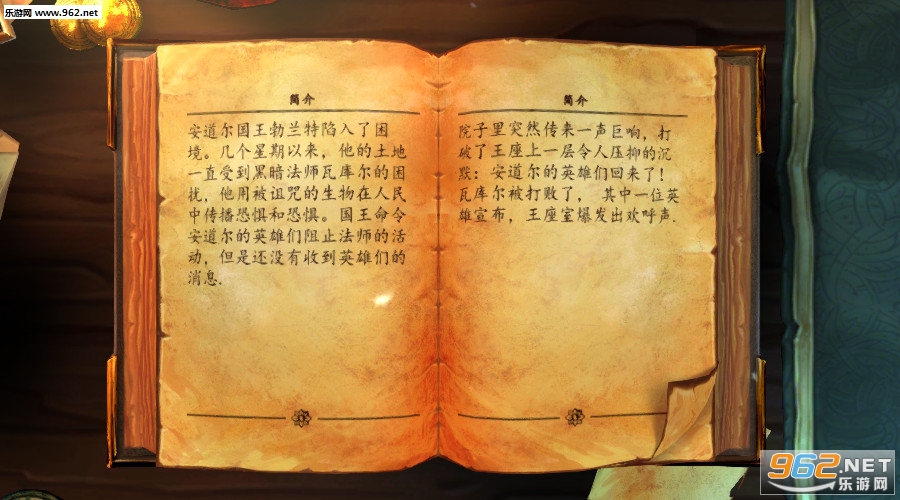 乐游网 www.962.net
简介
安道尔国王勃兰特陷入了困
境。几个星期以来，他的土地
一直受到黑暗法师瓦库尔的困
扰，他用被诅咒的生物在人民
中传播恐惧和恐惧。国王命令
安道尔的英雄们阻止法师的活
动，但是还没有收到英雄们的
消息.
简介
院子里突然传来一声巨响，打
破了王座上一层令人压抑的沉
默：安道尔的英雄们回来了！
瓦库尔被打败了， 其中一位英
雄宣布，王座室爆发出欢呼声.
962.NET
乐游网